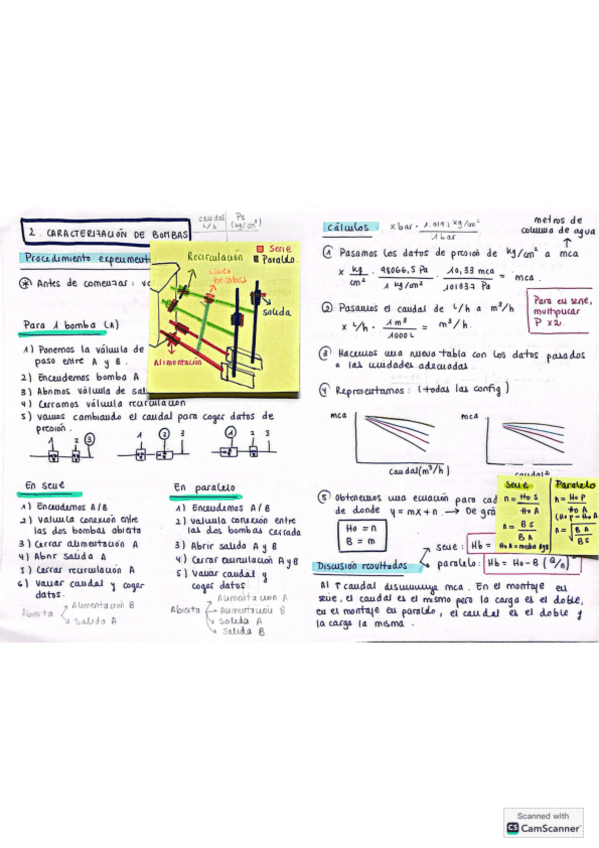 2. CARACTERIZACIÓN DE BOMBAS
caudal L/h
Ps (kg/cm²)
Procedimiento experimenta
* Antes de comenzar: va
Recirculación
Serie
Paralelo
Salida
Alimentación
Para 1 bomba (A)
1) Ponemos la válvula de
paso entre A y B.
2) Encendemos bomba A
3) Abrimos válvula de sal
4) Cerramos válvula recirculación
5) Vamos cambiando el caudal para coger datos de
presión.
1 2 3
1 2 3
1 2 3
En serie
1) Encendemos A/B
2) Valvula conexión entre
las dos bombas abierta
3) Cerrar alimentación A
4) Abrir Salida A
5) Cerrar recirculación A
6) Variar caudal y coger
datos.
Abierta
Alimentación B
Salida A
En paralelo
1) Encendemos A/B
2) Valvula conexión entre
las dos bombas cerrada
3) Abrir salida A y B
4) Cerrar recirculación A y B
5) Variar caudal y
coger datos
Abierta
Alimentación A
Alimentación B
Salida A
Salida B
Cálculos
x bar · 1.0197 kg/cm² / 1 bar
metros de
columna de agua
① Pasamos los datos de presión de kg/cm² a mca
x kg/cm² · 98066,5 Pa / 1 kg/cm² · 10,33 mca / 101037 Pa = mca.
② Pasamos el caudal de L/h a m³/h
x L/h · 1 m³ / 1000 L = m³/h.
Para en serie,
multiplicar
P x2
③ Hacemos una nueva tabla con los datos pasados
a las unidades adecuadas.
④ Representamos: (todas las config)
mca
caudal (m³/h)
mca
caudal
⑤ Obtenemos una ecuación para cad
de donde y = mx + n. → De grá
Ho = n
B = m
Serie
n = Ho S / Ho A
n = B S / B A
Paralelo
n = Ho P / Ho A
n = √ B A / B S
serie: Hb =
paralelo: Hb = Ho - B (Q/n)
Discusión resultados
Al ↑ caudal disminuye mca. En el montaje en
serie, el caudal es el mismo pero la carga es el doble,
en el montaje en paralelo, el caudal es el doble y
la carga la misma.
Scanned with
CS CamScanner